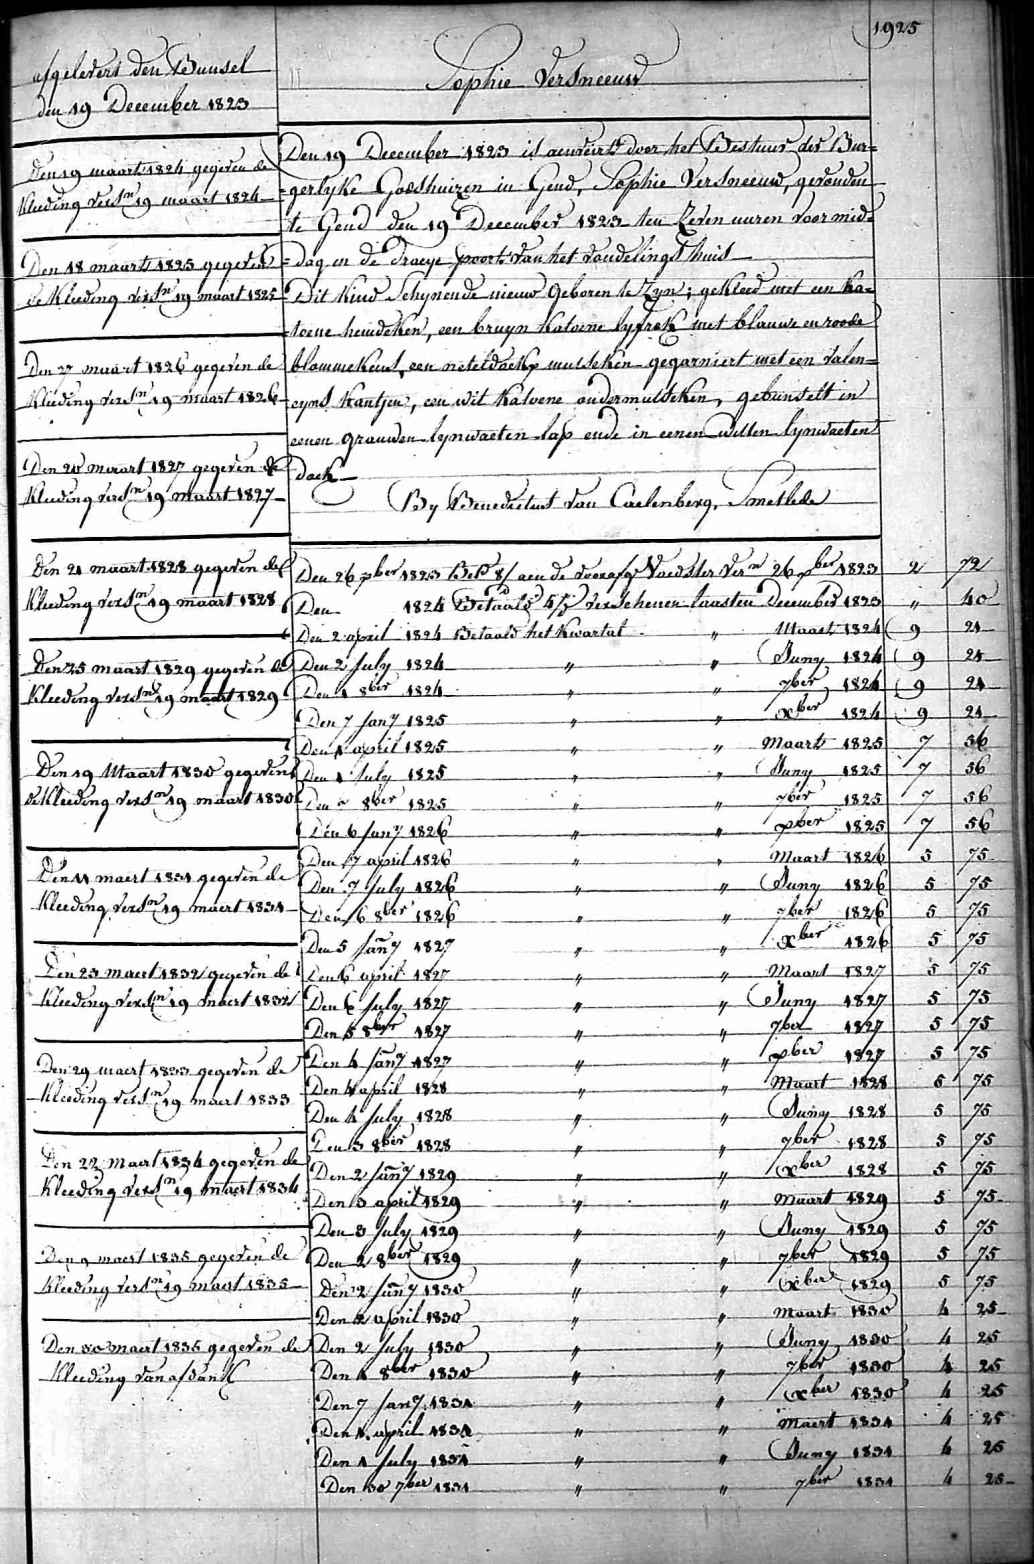 1925
afgelevert den Bunsel
den 19 December 1823
Sophie Versneeuw
Den 19 maart 1824 gegeven de
Kleeding versn 19 maart 1824
Den 18 maart 1825 gegeven
de Kleeding versn 19 maart 1825
Den 27 maart 1826 gegeven de
Kleeding versn 19 maart 1826
Den 20 maart 1827 gegeven de
Kleeding versn 19 maart 1827
Den 21 maart 1828 gegeven de
Kleeding versn 19 maart 1828
Den 25 maart 1829 gegeven de
Kleeding versn 19 maart 1829
Den 19 Maart 1830 gegeven
de Kleeding versn 19 maart 1830
Den 11 maert 1831 gegeven de
Kleeding versn 19 maert 1831
Den 23 maert 1832 gegeven de
Kleeding versn 19 maert 1832
Den 29 maert 1833 gegeven de
Kleeding versn 19 maert 1833
Den 22 maert 1834 gegeven de
Kleeding versn 19 maert 1834
Den 9 maert 1835 gegeven de
Kleeding versn 19 maert 1835
Den 30 maert 1836 gegeven de
Kleeding van afdank
Den 19 December 1823 is aenveird door het Bestuur der Bur=
=gerlyke Godshuizen in Gend, Sophie Versneeuw, gevonden
te Gend den 19 December 1823 ten Zeven uuren voormid=
=dag in de Draeye poort van het vondelingshuis
Dit Kind Schynende nieuw Geboren te Zyn; gekleed met een Ka=
=toene hemdeken, een bruyn Katoene lyfrok met blauwe en roode
blommekens, een neteldoekx mutseken gegarniert met een valen=
=cyns kantjen, een wit Katoene ondermutseken, gebunselt in
eenen grauwen lynwaeten lap ende in eenen witten lynwaeten
doek
By Benedictus van Caelenberg, Smetlede
Den 26 xber 1823 Betd 8/ aen de voorafge Voedster Versn 26 xber 1823 2 72
Den 1824 Betaald 4/5 verschenen laasten December 1823 " 40
Den 2 april 1824 Betaald het Kwartal " Maart 1824 9 21
Den 2 July 1824 " " Juny 1824 9 21
Den 1 8ber 1824 " " 7ber 1824 9 21
Den 7 Jany 1825 " " xber 1824 9 21
Den 1 april 1825 " " Maart 1825 7 56
Den 1 July 1825 " " Juny 1825 7 56
Den 8ber 1825 " " 7ber 1825 7 56
Den 6 Jany 1826 " " xber 1825 7 56
Den 7 april 1826 " " Maart 1826 5 75
Den 7 July 1826 " " Juny 1826 5 75
Den 6 8ber 1826 " " 7ber 1826 5 75
Den 5 Jany 1827 " " xber 1826 5 75
Den 6 april 1827 " " Maart 1827 5 75
Den 6 July 1827 " " Juny 1827 5 75
Den 5 8ber 1827 " " 7ber 1827 5 75
Den 4 Jany 1827 " " xber 1827 5 75
Den 4 april 1828 " " Maart 1828 5 75
Den 4 July 1828 " " Juny 1828 5 75
Den 3 8ber 1828 " " 7ber 1828 5 75
Den 2 Jany 1829 " " xber 1828 5 75
Den 3 april 1829 " " Maart 1829 5 75
Den 3 July 1829 " " Juny 1829 5 75
Den 2 8ber 1829 " " 7ber 1829 5 75
Den 2 Jany 1830 " " xber 1829 5 75
Den 2 april 1830 " " Maart 1830 4 25
Den 2 July 1830 " " Juny 1830 4 25
Den 1 8ber 1830 " " 7ber 1830 4 25
Den 7 Jany 1831 " " xber 1830 4 25
Den 1 april 1831 " " Maert 1831 4 25
Den 1 July 1831 " " Juny 1831 4 25
Den 30 7ber 1831 " " 7ber 1831 4 25